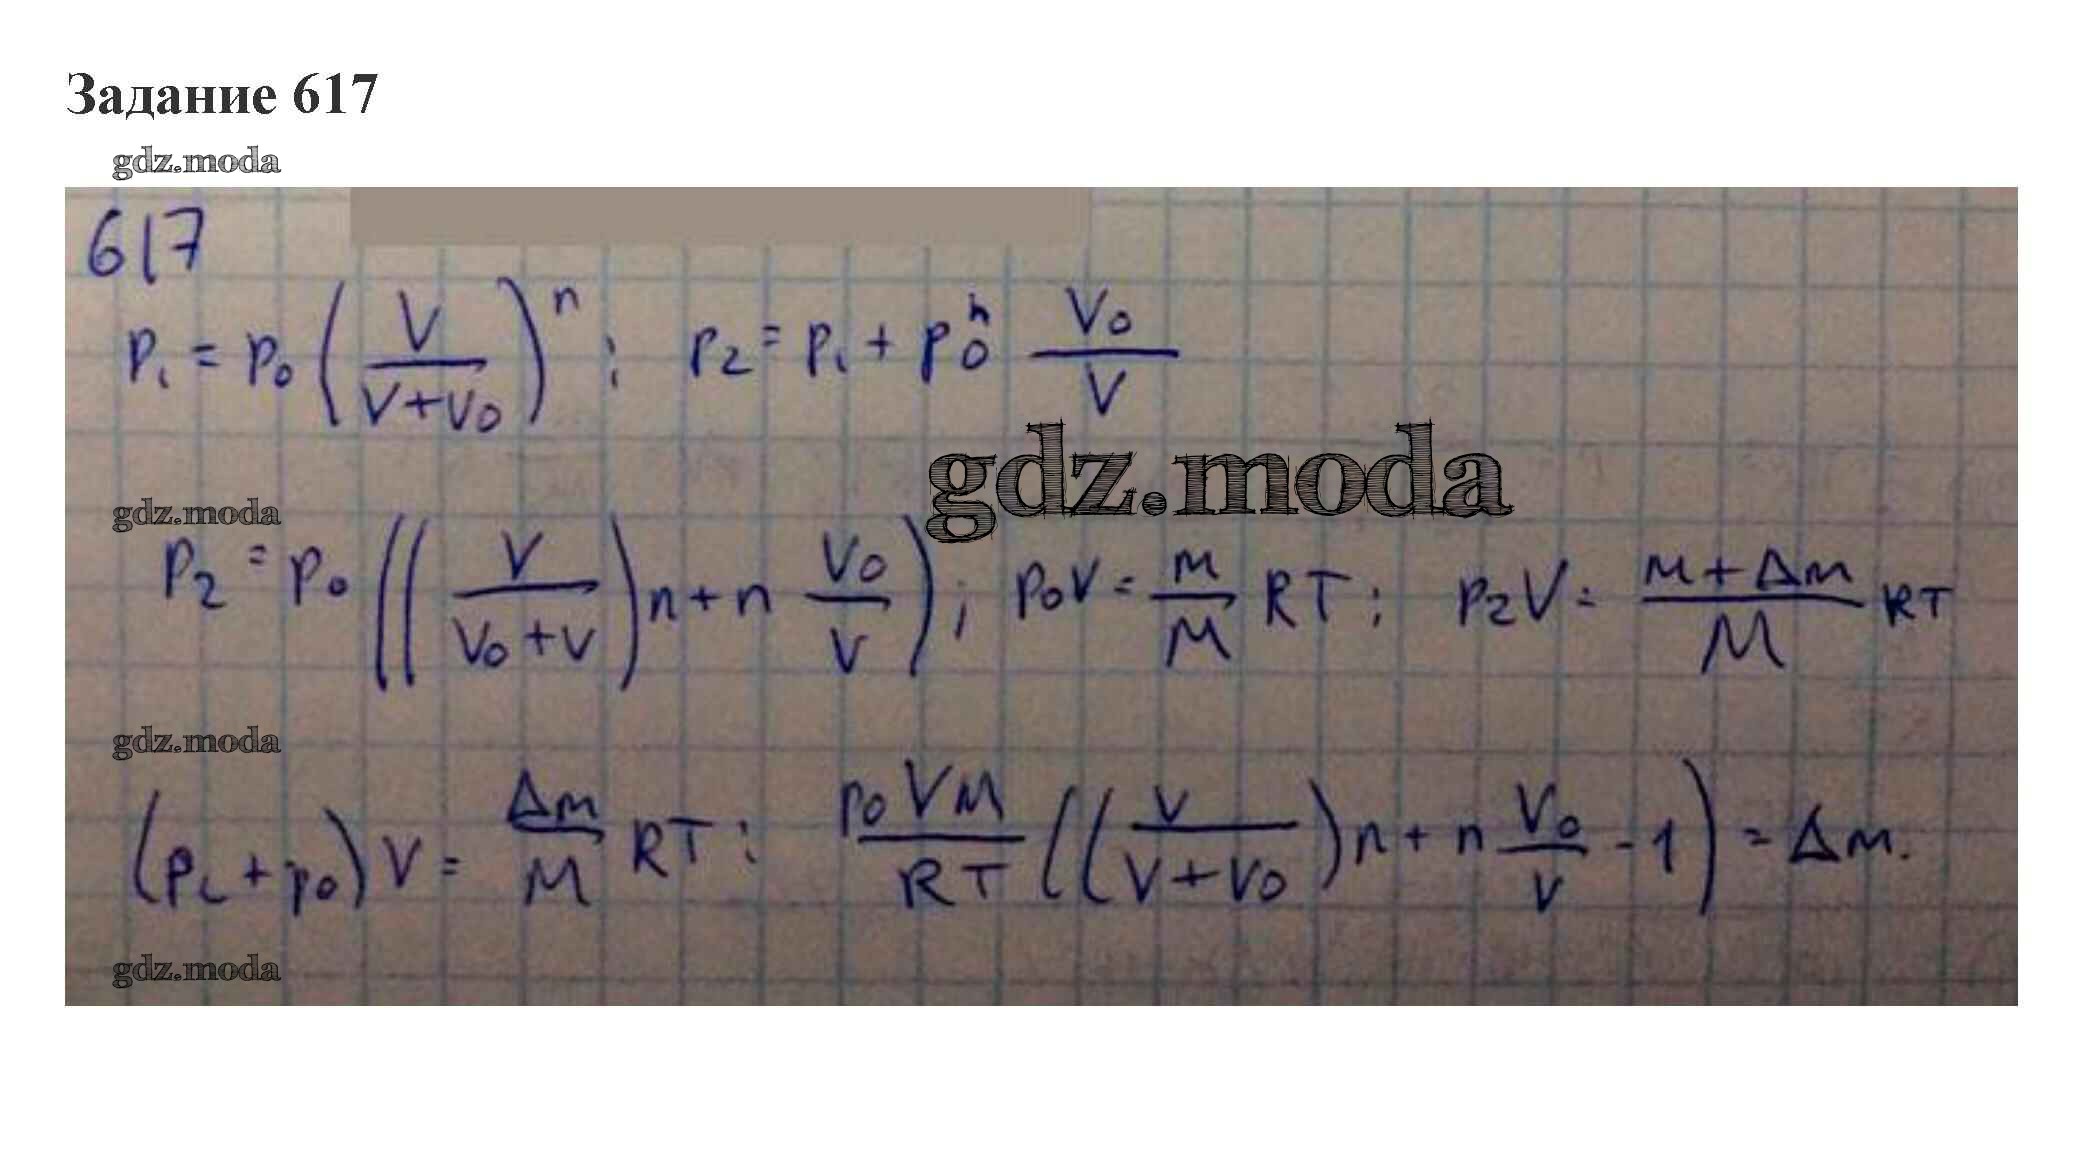 Задание 617
gdz.moda
617
p₁ = p₀ (V / (V+V₀))ⁿ ; p₂ = p₁ + p₀ n V₀ / V
gdz.moda
gdz.moda
p₂ = p₀ ((V / (V₀+V)) n + n V₀ / V) ; p₀V = m / M RT ; p₂V = (m + Δm) / M RT
gdz.moda
(p₂ + p₀) V = Δm / M RT ; p₀VM / RT ((V / (V+V₀)) n + n V₀ / V - 1) = Δm.
gdz.moda